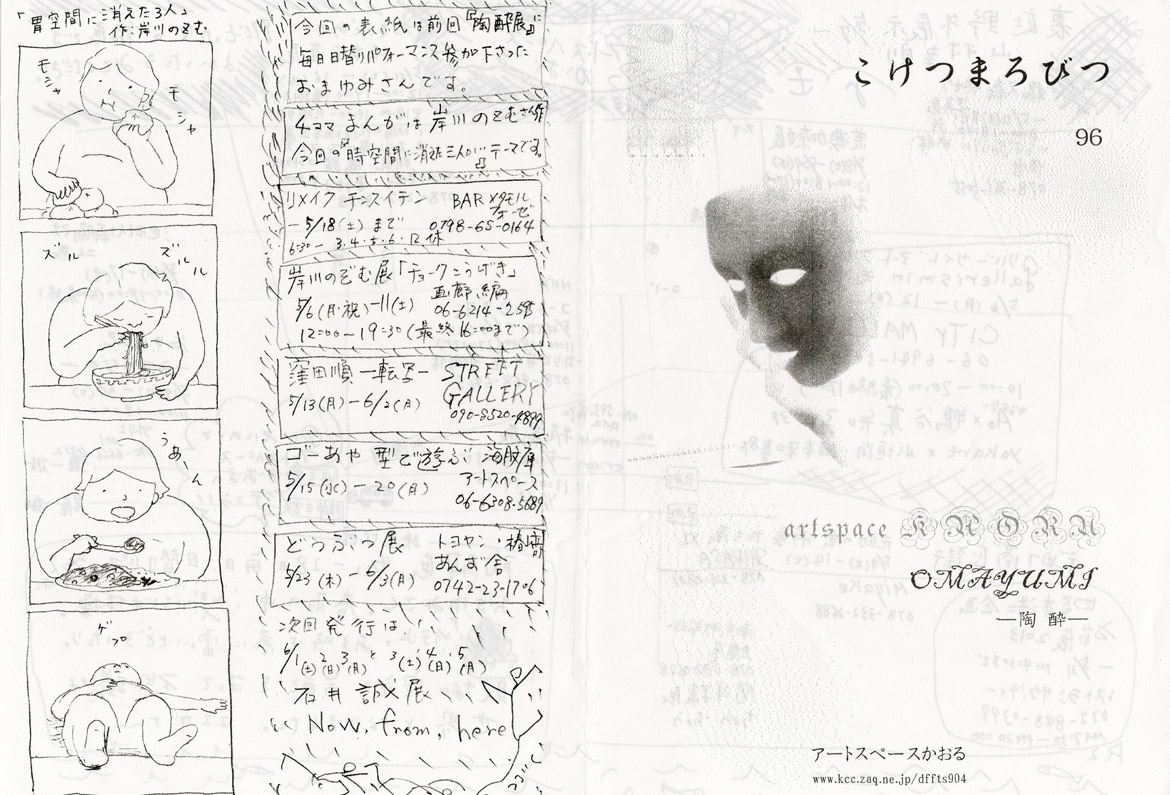 「胃空間に消えた3人」
作:岸川のぞむ
モシャ
モシャ
ズル
ズルル
うあーん
ゲプ
今回の表紙は前回『陶酔展』に
毎日日替りパフォーマンス参加下さった
おまゆみさんです。
4コマまんがは岸川のぞむさん作
今回の『時空間に消えた三人』がテーマです。
リメイク チンスイテン BARメタモル
-5/18(土)まで 0798-65-0164
6:30- 3・4・5・6・12休
岸川のぞむ展「チョークこうげき」
5/6(月・祝)-11(土) 画廊編 06-6214-2595
12:00-19:30(最終16:00まで)
窪田順 -転写- STREET
GALLERY
5/13(月)-6/2(月)
090-8520-4899
ゴーあや 型で遊ぶ
5/15(水)-20(月) アートスペース
06-6308-5689
どうぶつ展 トヨヤン・
5/23(木)-6/3(月) あんず舎
0742-23-1706
次回発行は
6/1(土)2(日)3(月)と3(土)4(月)5(月)
石井誠展
Now, from, here
こけつまろびつ
96
artspace KAORU
OMAYUMI
―陶 酔―
アートスペースかおる
www.kcc.zaq.ne.jp/dffts904